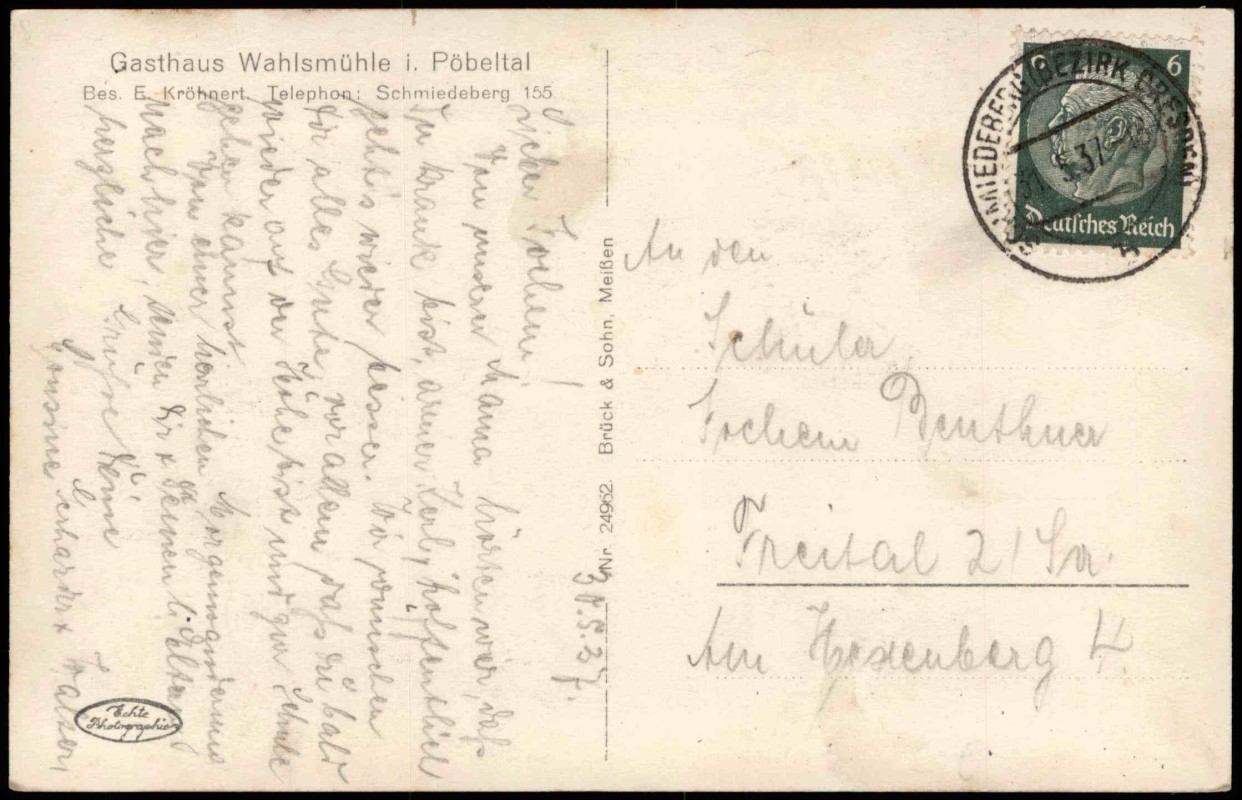 Gasthaus Wahlsmühle i. Pöbeltal
Bes. E. Kröhnert. Telephon: Schmiedeberg 155
31.5.37.
Lieber Jochem!
Von unserer Mama hörten wir, daß
Du krank bist, armer Kerl, hoffentlich
geht's wieder besser. Wir wünschen
Dir alles Gute, vor allem daß Du bald
wieder auf der Höhe bist und zur Schule
gehen kannst.
Von einer herrlichen Morgenwanderung
nach hier, senden Dir + Deinen l. Eltern
herzliche Grüße Deine
Cousine Gerharda + Walter
Echte
Photographie
Nr. 24962. Brück & Sohn, Meißen
6
Deutsches Reich
SCHMIEDEBERG (BEZIRK DRESDEN)
5.37
An den
Schüler
Jochem Benthner
Freital 2 / Sa.
Am Hexenberg 4